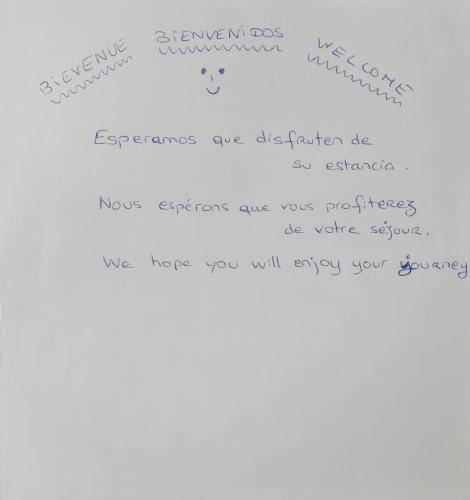 BIEVENUE
BIENVENIDOS
WELCOME
Esperamos que disfruten de
su estancia.
Nous espérons que vous profiterez
de votre séjour.
We hope you will enjoy your journey